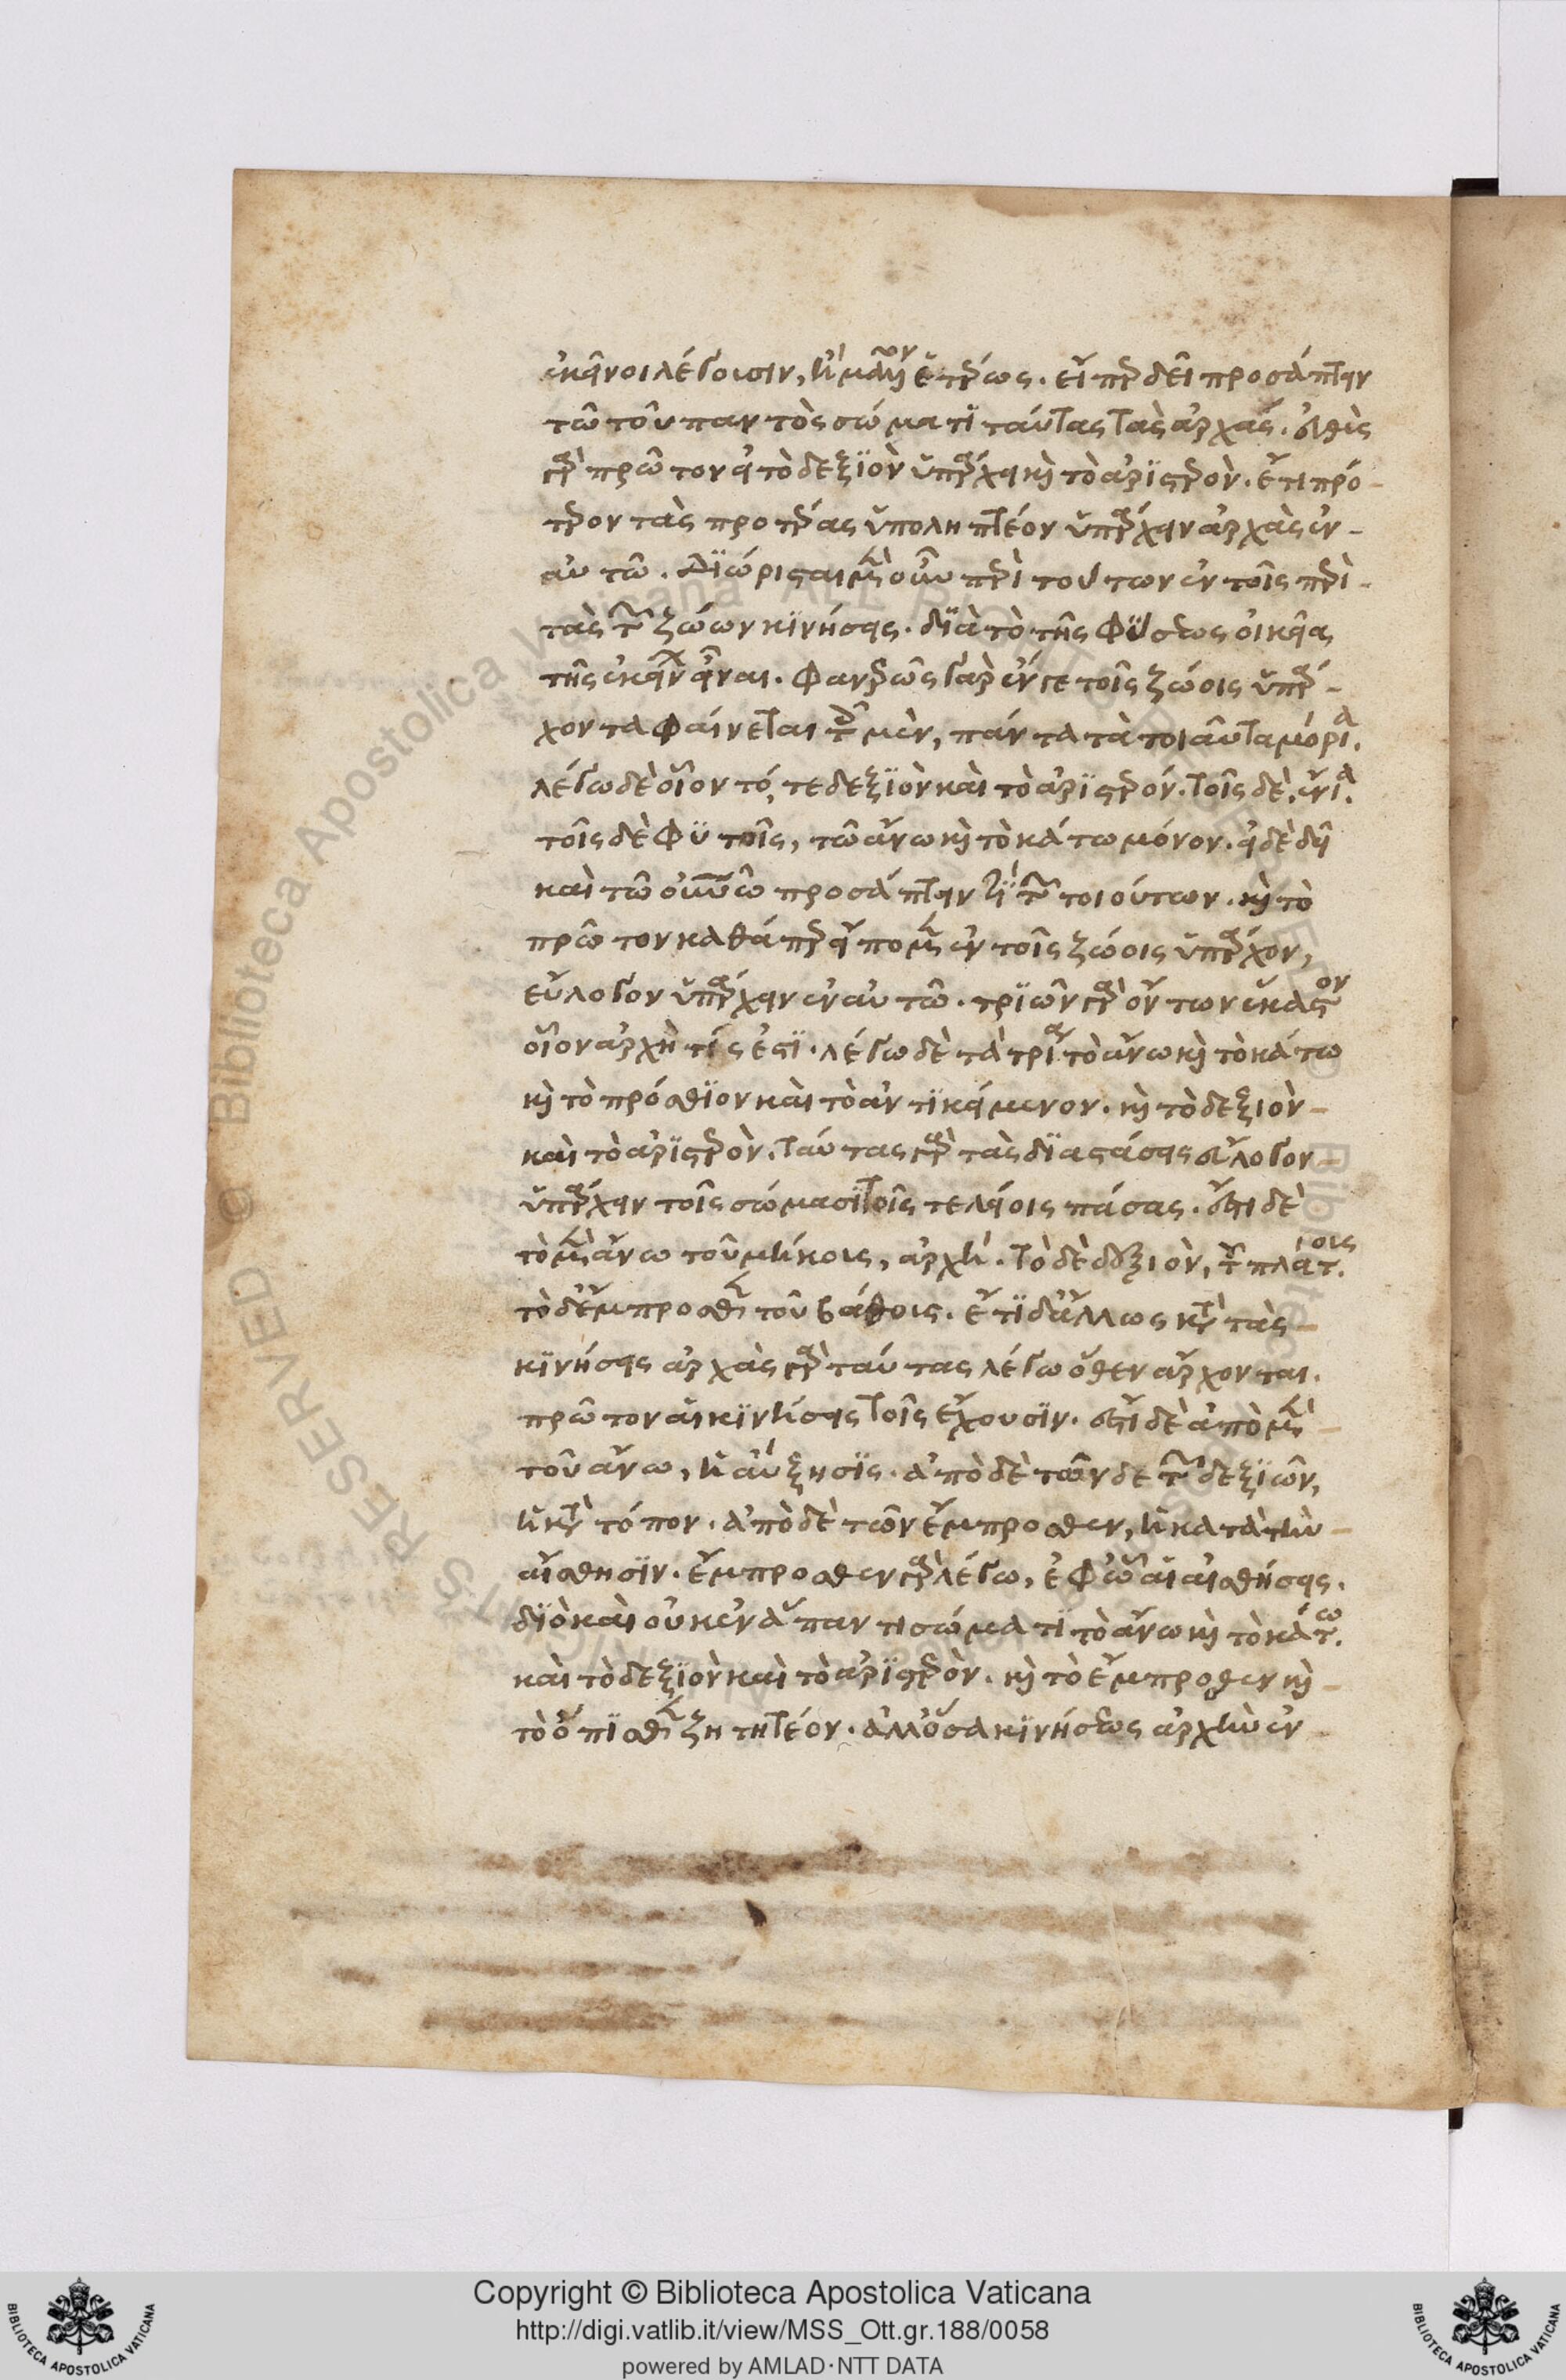 ἐκεῖνοι λέγουσιν, ἢ μᾶλλον ἑτέρως. εἴπερ δεῖ προσάπτειν
τῶ τοῦ παντὸς σώματι ταύτας τὰς ἀρχάς. εὐθὺς
γὰρ πρῶτον εἰ τὸ δεξιὸν ὑπάρχει καὶ τὸ ἀριστερὸν. ἔτι πρό-
τερον τὰς προτέρας ὑποληπτέον ὑπάρχειν ἀρχὰς ἐν
αὐτῶ. Διώρισται μὲν οὖν περὶ τούτων ἐν τοῖς περὶ
τὰς τῶν ζώων κινήσεις. διὰ τὸ τῆς φύσεως οἰκεῖα
τῆς ἐκείνων εἶναι. φανερῶς γὰρ ἔν γε τοῖς ζώοις ὑπάρ-
χοντα φαίνεται τοῖς μὲν, πάντα τὰ τοιαῦτα μόρια.
λέγω δὲ οἷον τό, τε δεξιὸν καὶ τὸ ἀριστερόν. τοῖς δὲ, ἔνια.
τοῖς δὲ φυτοῖς, τῶ ἄνω καὶ τὸ κάτω μόνον. εἰ δὲ δεῖ
καὶ τῶ οὐνῶ προσάπτειν τι τῶν τοιούτων. καὶ τὸ
πρῶτον καθάπερ εἴπομεν ἐν τοῖς ζώοις ὑπάρχον,
εὔλογον ὑπάρχειν ἐν αὐτῶ. τριῶν γὰρ ὄντων ἕκαστον
οἷον ἀρχή τίς ἐστι. λέγω δὲ τὰ τρία τὸ ἄνω καὶ τὸ κάτω
καὶ τὸ πρόσθιον καὶ τὸ ἀντικείμενον. καὶ τὸ δεξιὸν
καὶ τὸ ἀριστερὸν. ταύτας γὰρ τὰς διαστάσεις εὔλογον
ὑπάρχειν τοῖς σώμασι τοῖς τελείοις πάσας. ἔστι δὲ
τὸ μὲν ἄνω τοῦ μήκους, ἀρχή. τὸ δὲ δεξιὸν, τοῦ πλάτους.
τὸ δ' ἔμπροσθεν τοῦ βάθους. ἔτι δ' ἄλλως κατὰ τὰς
κινήσεις ἀρχὰς γὰρ ταύτας λέγω ὅθεν ἄρχονται.
πρῶτον αἱ κινήσεις τοῖς ἔχουσιν. ἔστι δὲ ἀπὸ μὲν
τοῦ ἄνω, ἡ αὔξησις. ἀπὸ δὲ τῶνδε τῶν δεξιῶν,
ἡ κατὰ τόπον. ἀπὸ δὲ τῶν ἔμπροσθεν, ἡ κατὰ τὴν
αἴσθησιν. ἔμπροσθεν γὰρ λέγω, ἐφ' ὧ αἱ αἰσθήσεις.
διὸ καὶ οὐκ ἐν ἅπαντι σώματι τὸ ἄνω καὶ τὸ κάτω.
καὶ τὸ δεξιὸν καὶ τὸ ἀριστερὸν. καὶ τὸ ἔμπροσθεν καὶ
τὸ ὄπισθεν ζητητέον. ἀλλ' ὅσα κινήσεως ἀρχὴν ἐν
Copyright © Biblioteca Apostolica Vaticana
http://digi.vatlib.it/view/MSS_Ott.gr.188/0058
powered by AMLAD·NTT DATA